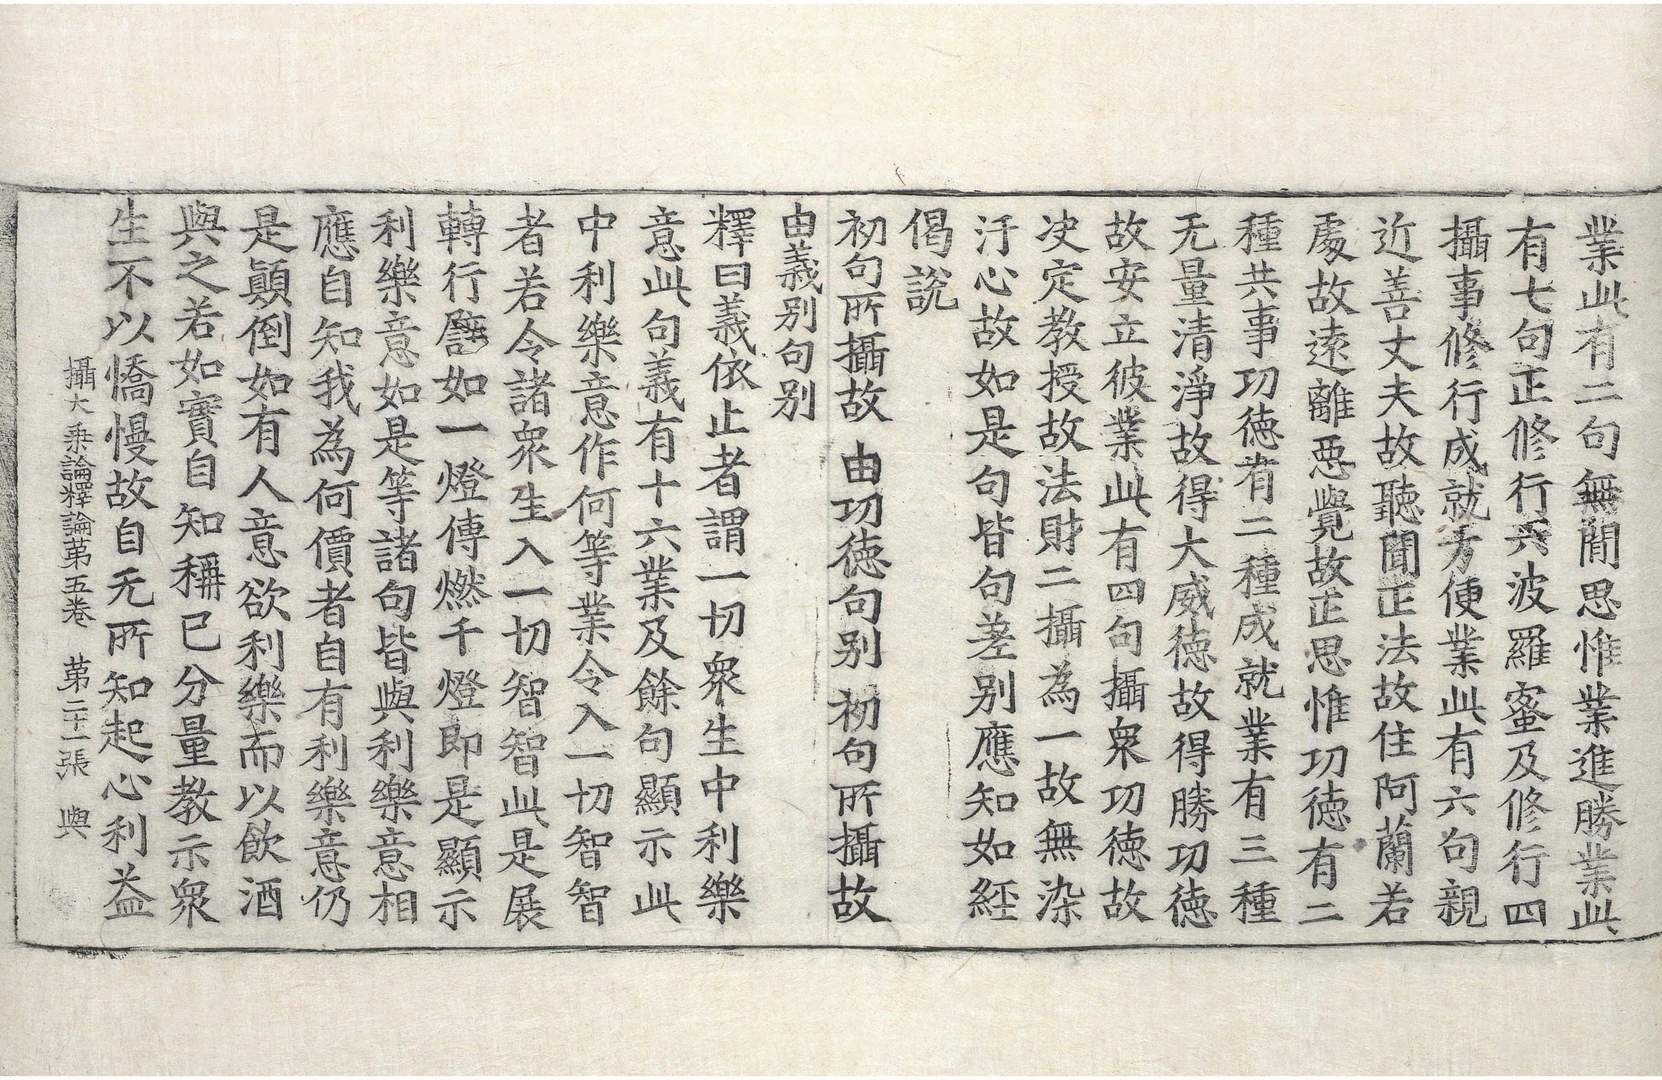 業此有二句無閒思惟業進勝業此
有七句正修行六波羅蜜及修行四
攝事修行成就方便業此有六句親
近善丈夫故聽聞正法故住阿蘭若
處故遠離惡覺故正思惟功德有二
種共事功德有二種成就業有三種
无量清淨故得大威德故得勝功德
故安立彼業此有四句攝衆功德故
決定教授故法財二攝為一故無染
汙心故如是句皆句差別應知如經
偈說
初句所攝故 由功德句別 初句所攝故
由義別句別
釋曰義依止者謂一切衆生中利樂
意此句義有十六業及餘句顯示此
中利樂意作何等業令入一切智智
者若令諸衆生入一切智智此是展
轉行譬如一燈傳燃千燈即是顯示
利樂意如是等諸句皆與利樂意相
應自知我為何價者自有利樂意仍
是顛倒如有人意欲利樂而以飲酒
與之若如實自知稱已分量教示衆
生不以憍慢故自无所知起心利益
攝大乘論釋論第五卷 第二十一張 與